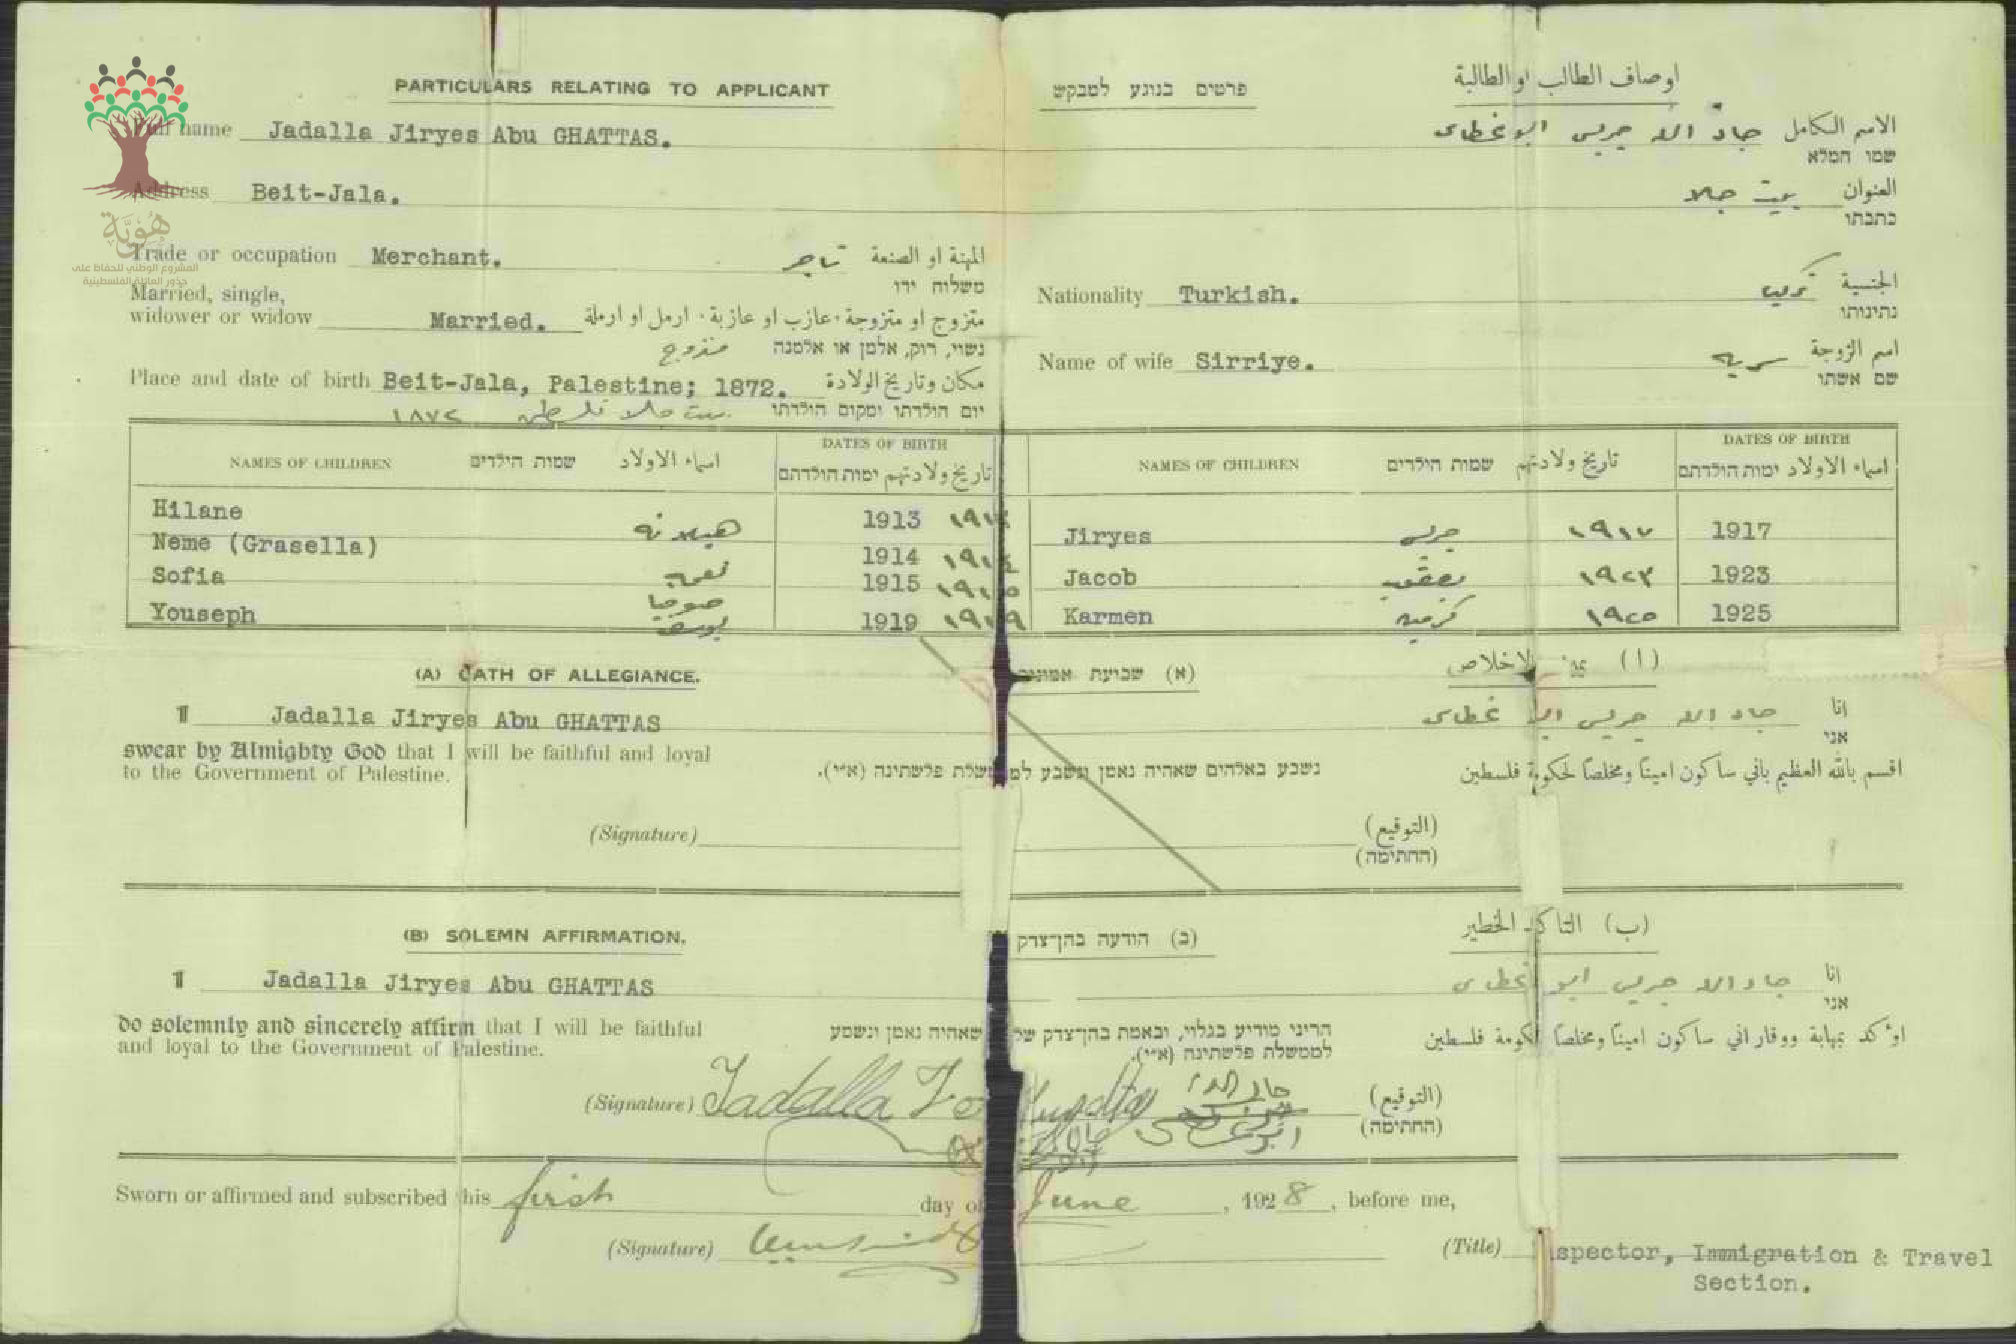 PARTICULARS RELATING TO APPLICANT
פרטים בנוגע למבקש
اوصاف الطالب او الطالبة
Full name Jadalla Jiryes Abu GHATTAS.
جاد الله جريس ابو غطاس الاسم الكامل
שמו המלא
Address Beit-Jala.
بيت جالا العنوان
כתבתו
هُوِيَّة
المشروع الوطني للحفاظ على
جذور العائلة الفلسطينية
Trade or occupation Merchant.
تاجر المهنة او الصنعة
משלוח ידו
Nationality Turkish.
الجنسية
נתינותו
Married, single,
widower or widow Married.
متزوج او متزوجة٠ عازب او عازبة٠ ارمل او ارملة
נשוי, רוק, אלמן או אלמנה متزوج
Name of wife Sirriye.
سريه اسم الزوجة
שם אשתו
Place and date of birth Beit-Jala, Palestine; 1872.
مكان وتاريخ الولادة
יום הולדתו ומקום הולדתו بيت جالا فلسطين ١٨٧٢
NAMES OF CHILDREN שמות הילדים اسماء الاولاد
DATES OF BIRTH
تاريخ ولادتهم ימות הולדתם
NAMES OF CHILDREN שמות הילדים تاريخ ولادتهم
DATES OF BIRTH
اسماء الاولاد ימות הולדתם
Hilane هيلانه 1913
Neme (Grasella) نعمه 1914 ١٩١٤
Sofia صوفيا 1915 ١٩١٥
Youseph يوسف 1919 ١٩١٩
Jiryes جريس ١٩١٧ 1917
Jacob يعقوب ١٩٢٣ 1923
Karmen ١٩٢٥ 1925
(A) OATH OF ALLEGIANCE.
(א) שבועת אמונים
(ا) الاخلاص
I Jadalla Jiryes Abu GHATTAS
جاد الله جريس ابو غطاس انا
אני
swear by Almighty God that I will be faithful and loyal
to the Government of Palestine.
נשבע באלהים שאהיה נאמן ונשמע לממשלת פלשתינה (א״י).
اقسم بالله العظيم باني ساكون امينًا ومخلصًا لحكومة فلسطين
(Signature)
(التوقيع)
(החתימה)
(B) SOLEMN AFFIRMATION.
(ב) הודעה בהן־צדק
(ب) التاكيد الخطير
I Jadalla Jiryes Abu GHATTAS
جاد الله جريس ابو غطاس انا
אני
do solemnly and sincerely affirm that I will be faithful
and loyal to the Government of Palestine.
הריני מודיע בגלוי, ובאמת בהן־צדק שאהיה נאמן ונשמע
לממשלת פלשתינה (א״י).
اوٴكد بمهابة ووقار اني ساكون امينًا ومخلصًا لحكومة فلسطين
(Signature) Jadalla
جاد الله
ابو غطاس
(التوقيع)
(החתימה)
Sworn or affirmed and subscribed this first day of June, 1928, before me,
(Signature)
(Title) spector, Immigration & Travel
Section.